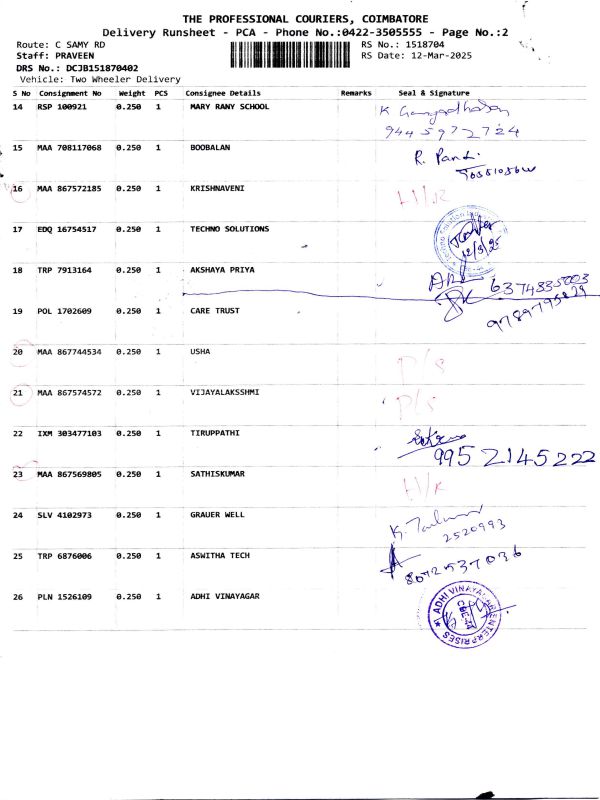 THE PROFESSIONAL COURIERS, COIMBATORE
Delivery Runsheet - PCA - Phone No.:0422-3505555 - Page No.:2
Route: C SAMY RD RS No.: 1518704
Staff: PRAVEEN RS Date: 12-Mar-2025
DRS No.: DCJB151870402
Vehicle: Two Wheeler Delivery
S No Consignment No Weight PCS Consignee Details Remarks Seal & Signature
14 RSP 100921 0.250 1 MARY RANY SCHOOL
9445972724
15 MAA 708117068 0.250 1 BOOBALAN R. Pandi
16 MAA 867572185 0.250 1 KRISHNAVENI
17 EDQ 16754517 0.250 1 TECHNO SOLUTIONS
12/3/25
18 TRP 7913164 0.250 1 AKSHAYA PRIYA
6374835003
19 POL 1702609 0.250 1 CARE TRUST 9789795829
20 MAA 867744534 0.250 1 USHA P/s
21 MAA 867574572 0.250 1 VIJAYALAKSSHMI P/s
22 IXM 303477103 0.250 1 TIRUPPATHI
9952145222
23 MAA 867569805 0.250 1 SATHISKUMAR
24 SLV 4102973 0.250 1 GRAUER WELL
2520993
25 TRP 6876006 0.250 1 ASWITHA TECH
8072537036
26 PLN 1526109 0.250 1 ADHI VINAYAGAR
ADHI VINAYAGAR ENTERPRISES